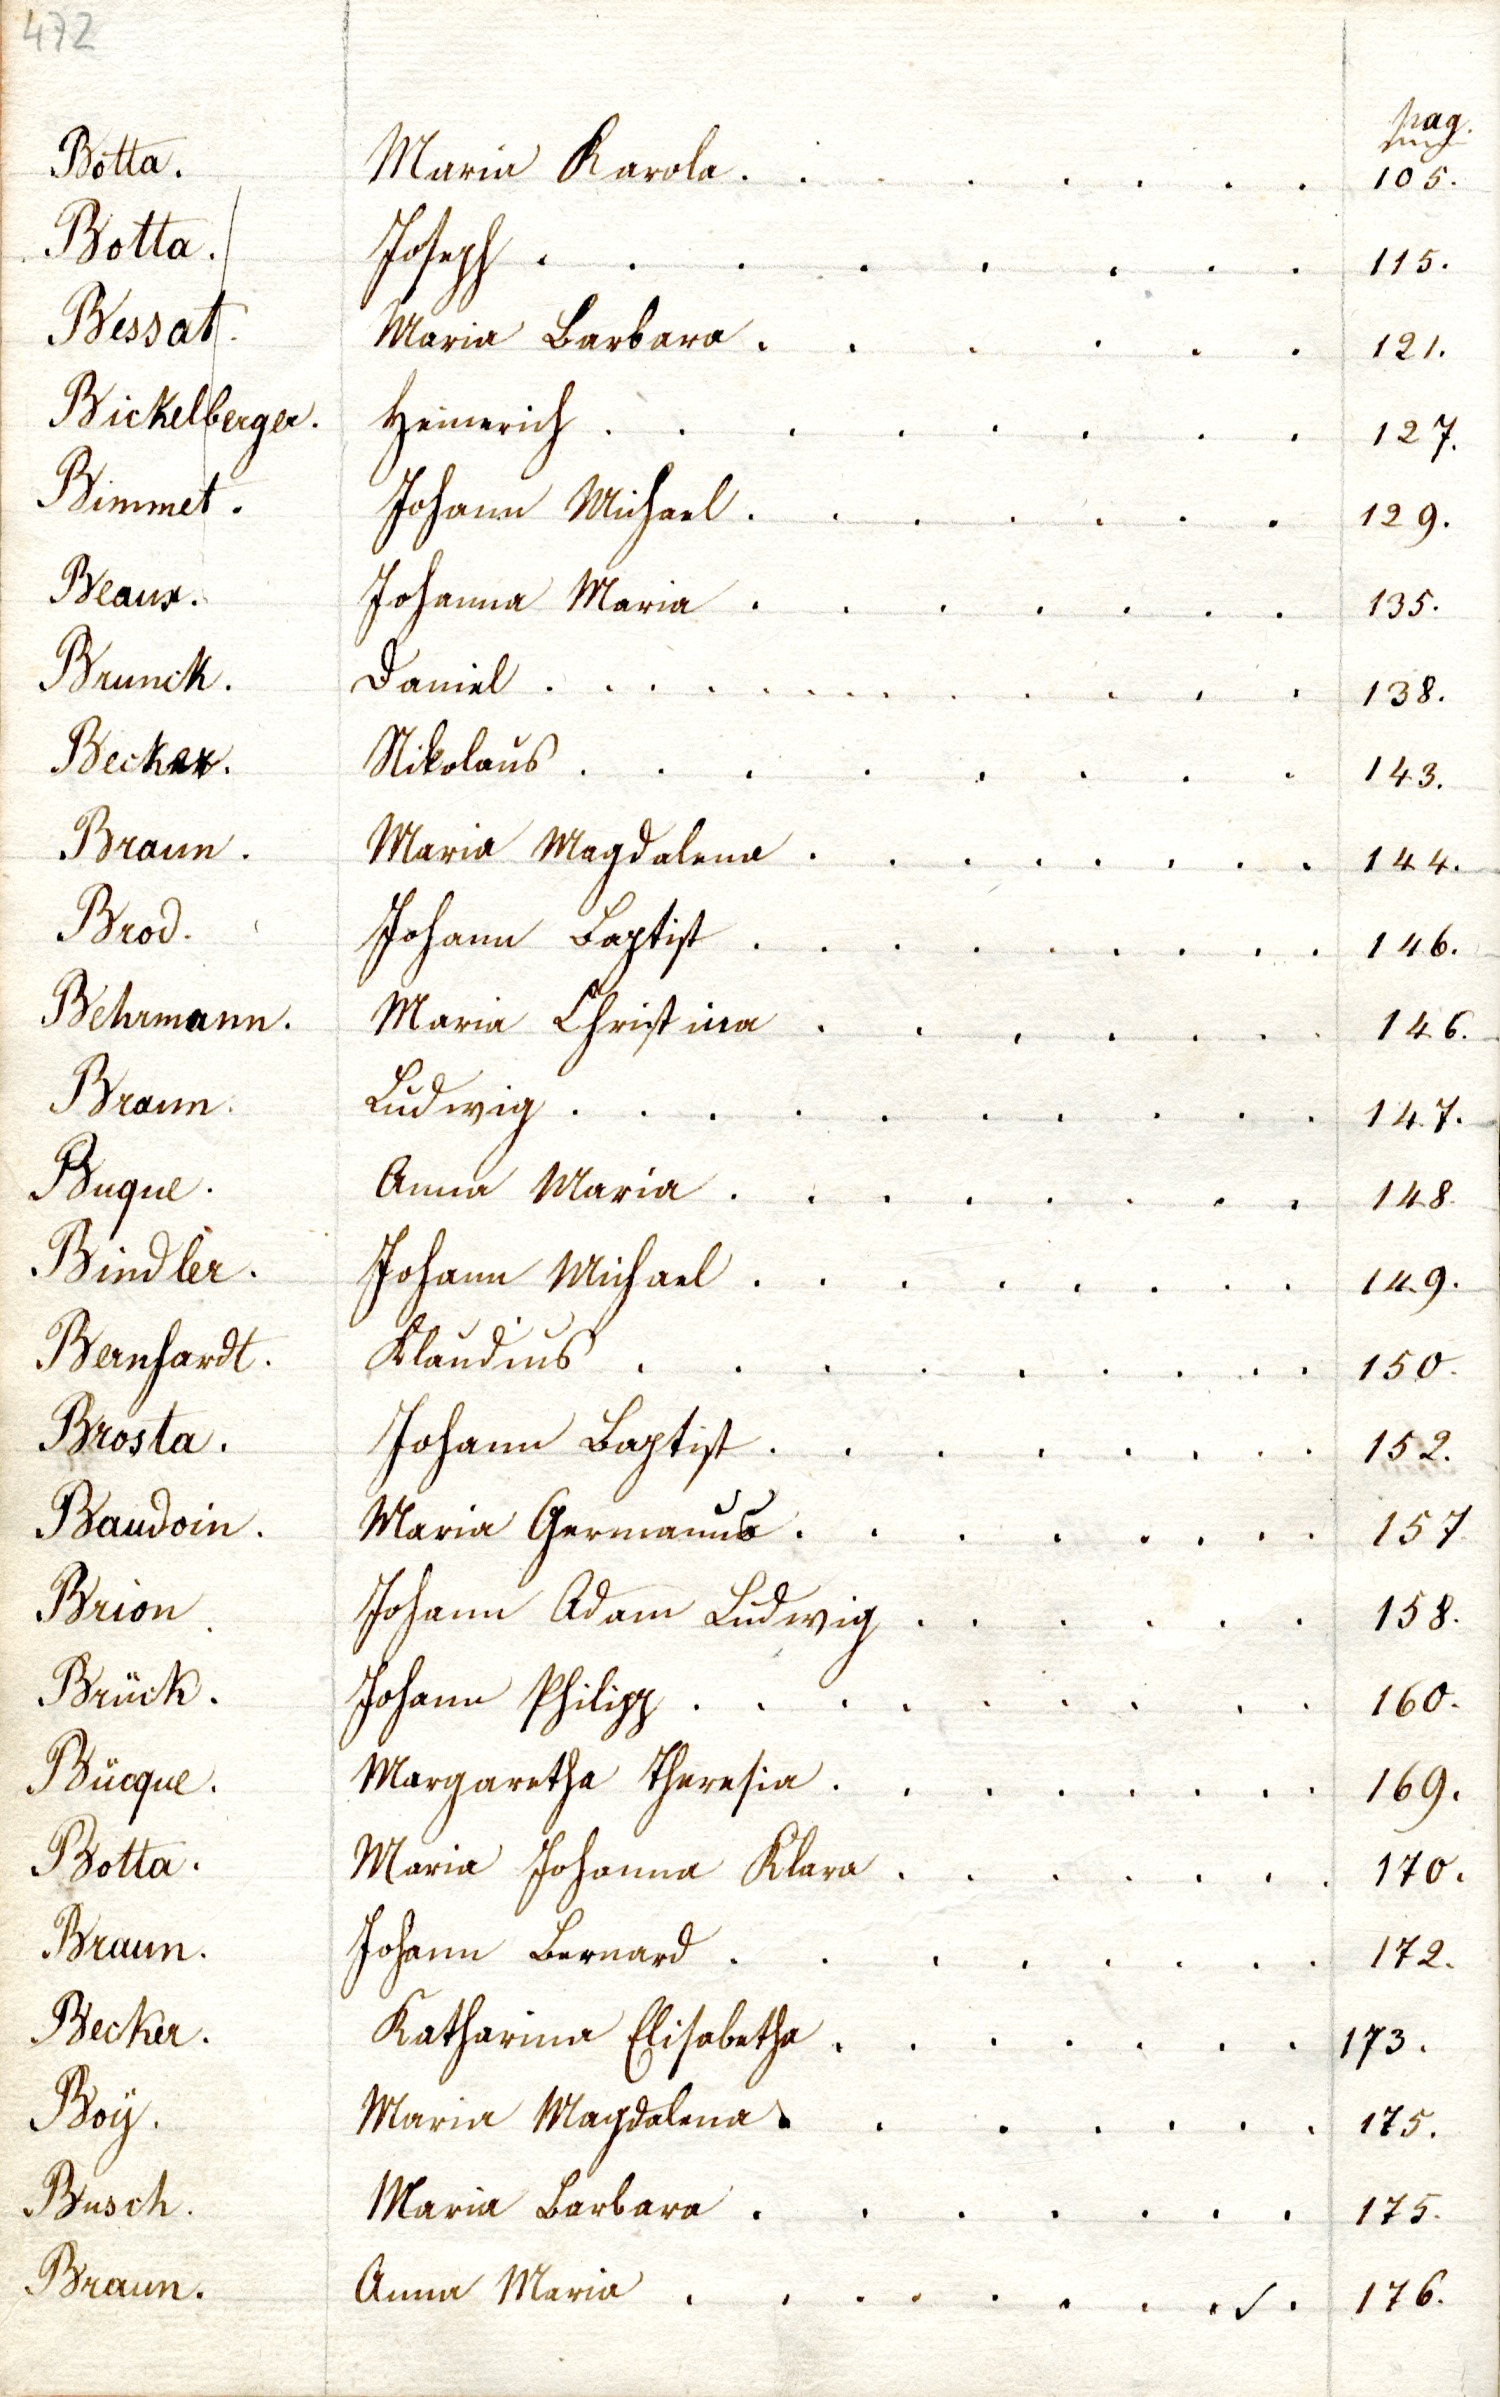 472
pag.
Botta. Maria Karola. 105.
Botta. Joseph. 115.
Bessat. Maria Barbara. 121.
Bickelberger. Heinerich. 127.
Bimmet. Johann Michael. 129.
Beaux. Johanna Maria. 135.
Brunck. Daniel. 138.
Becker. Nikolaus. 143.
Braun. Maria Magdalena. 144.
Brod. Johann Baptist. 146.
Behrmann. Maria Christina. 146.
Braun. Ludwig. 147.
Buque. Anna Maria. 148.
Bindler. Johann Michael. 149.
Bernhardt. Klaudius. 150.
Brosta. Johann Baptist. 152.
Baudoin. Maria 157
Brion. Johann Adam Ludwig. 158.
Brück. Johann Philipp. 160.
Bücque. Margaretha Theresia. 169.
Botta. Maria Johanna Klara. 170.
Braun. Johann Bernard. 172.
Becker. Katharina Elisabetha. 173.
Boÿ. Maria Magdalena. 175.
Busch. Maria Barbara. 175.
Braun. Anna Maria. 176.